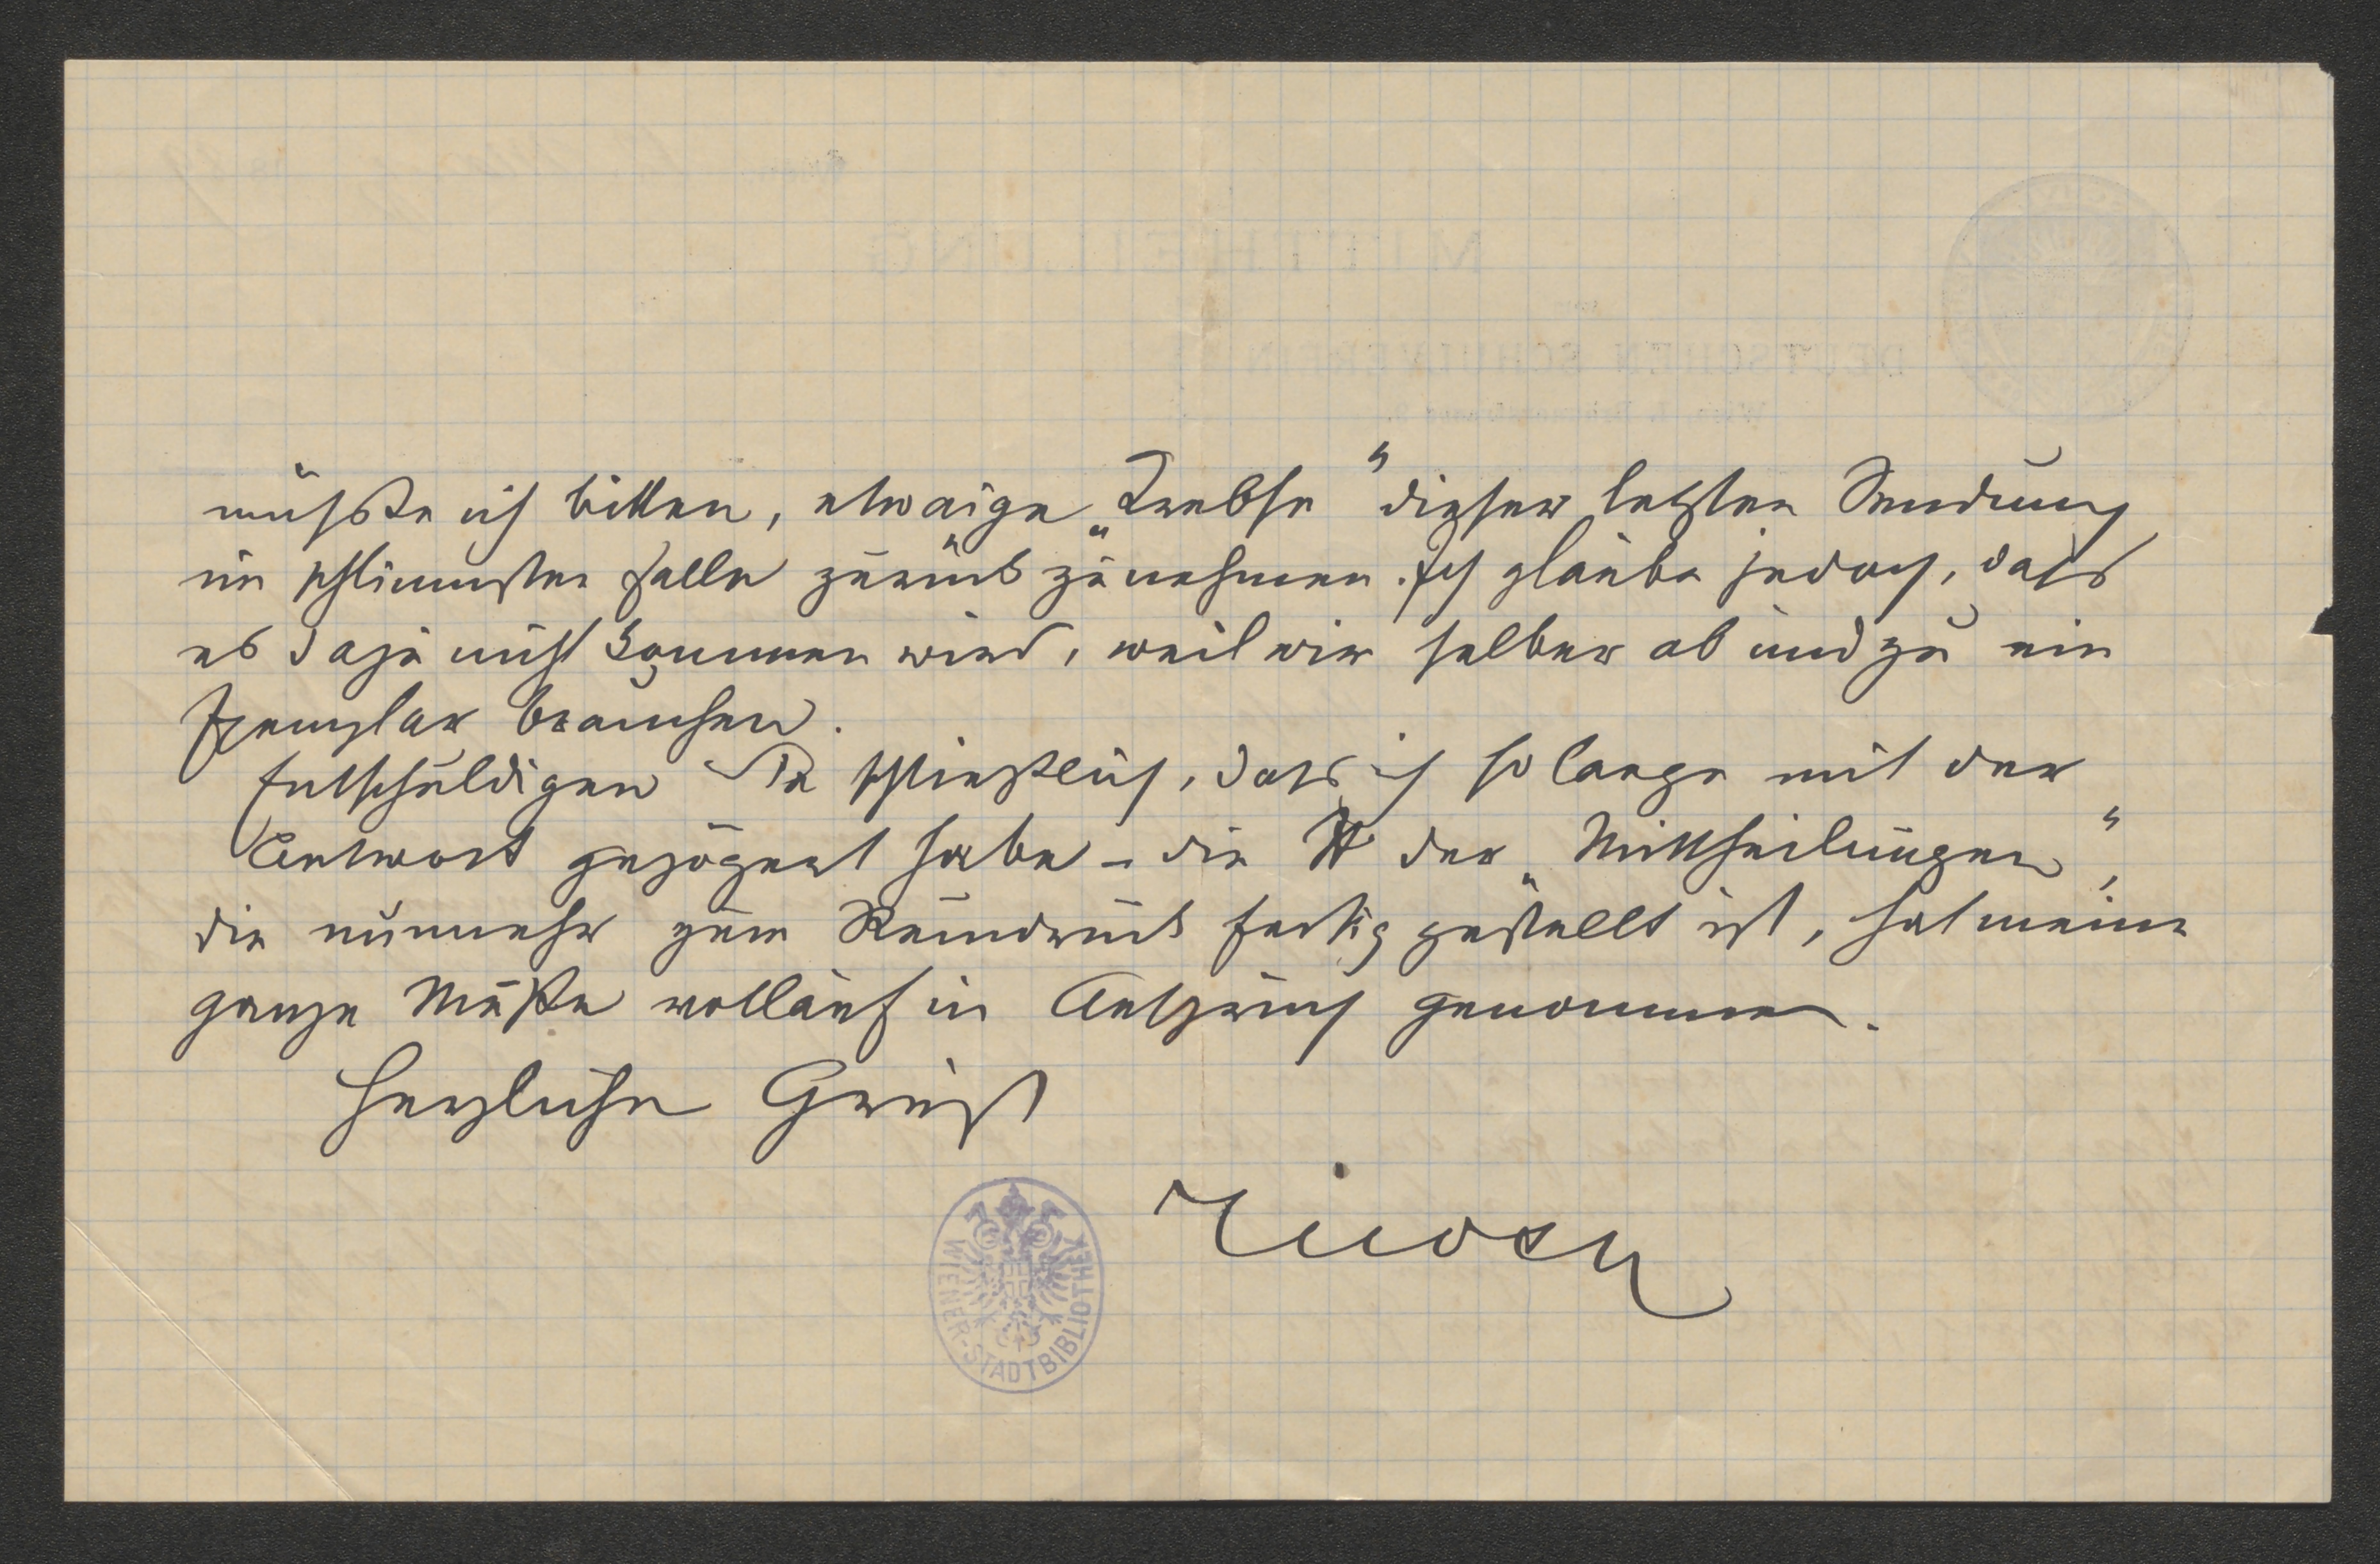 müsste ich bitten, etwaige „Krebse“ dieser letzten Sendung
im schlimmsten Falle zurück zu nehmen. Ich glaube jedoch, dass
es dazu nicht kommen wird, weil wir selber ab und zu ein
Exemplar brauchen.
Entschuldigen Sie schließlich, dass ich so lange mit der
Antwort gezögert habe – die № der „Mittheilungen“,
die nunmehr zum Reindruck fertig gestellt ist, hat meine
ganze Muße vollauf in Anspruch genommen.
Herzlichen Gruß
WIENER-STADTBIBLIOTHEK
MITTHEILUNG
DEUTSCHEN SCHULVEREIN